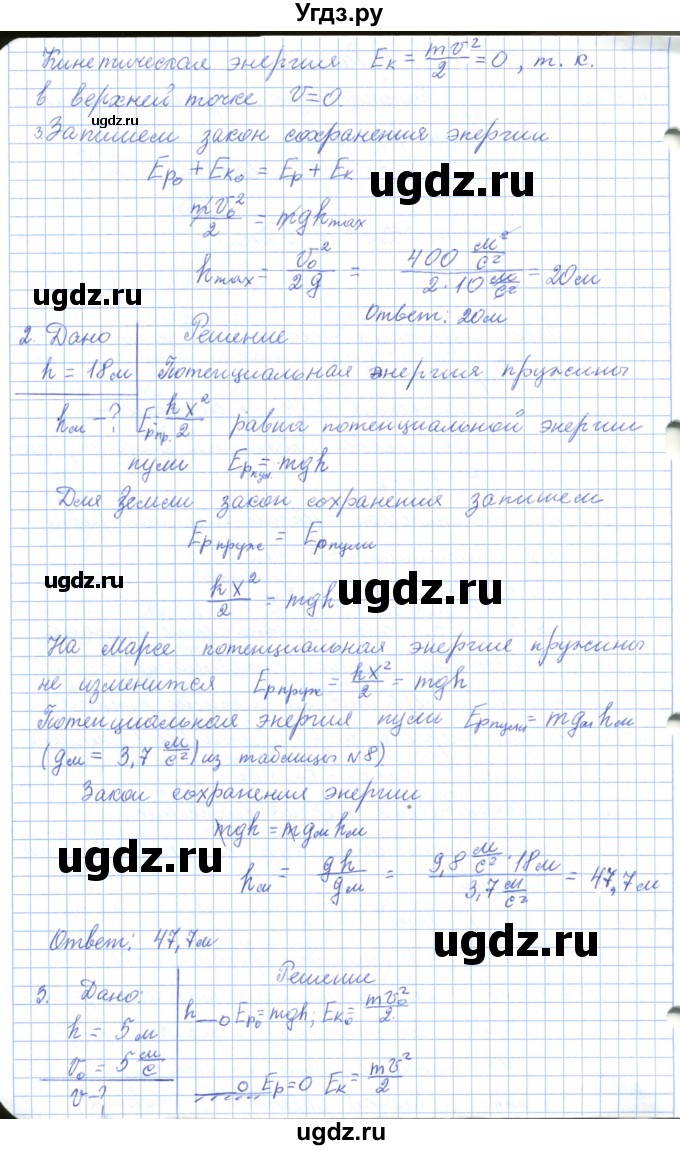 Угдз.ру
Кинетическая энергия Eк = mv²/2 = 0, т. к.
в верхней точке v=0
ugdz.ru
3. Запишем закон сохранения энергии
Ep₀ + Eк₀ = Ep + Eк
ugdz.ru
mv₀²/2 = mghmax
hmax = v₀²/2g = 400 м²/с² / 2·10 м/с² = 20м
ugdz.ru
Ответ: 20м
2. Дано Решение
ugdz.ru
h = 18м Потенциальная энергия пружины
hм -? Eр пр. = kx²/2 равна потенциальной энергии
ugdz.ru
пули Eр пул. = mgh
Для Земли закон сохранения запишем
Eр пруж = Eр пули
ugdz.ru
ugdz.ru
kx²/2 = mgh
На Марсе потенциальная энергие пружины
не изменится Eр пруж = kx²/2 = mgh
Потенциальная энергия пули Eр пули = mgмhм
(gм = 3,7 м/с²) из таблицы №8)
Закон сохранения энергии
mgh = mgмhм
ugdz.ru
hм = gh/gм = 9,8 м/с² · 18м / 3,7 м/с² = 47,7м
Ответ: 47,7м
ugdz.ru
3. Дано: Решение
h = 5м h Ep₀=mgh; Eк₀= mv₀²/2
ugdz.ru
v₀ = 5 м/с
ugdz.ru
v-? Ep=0 Eк= mv²/2
ugdz.ru